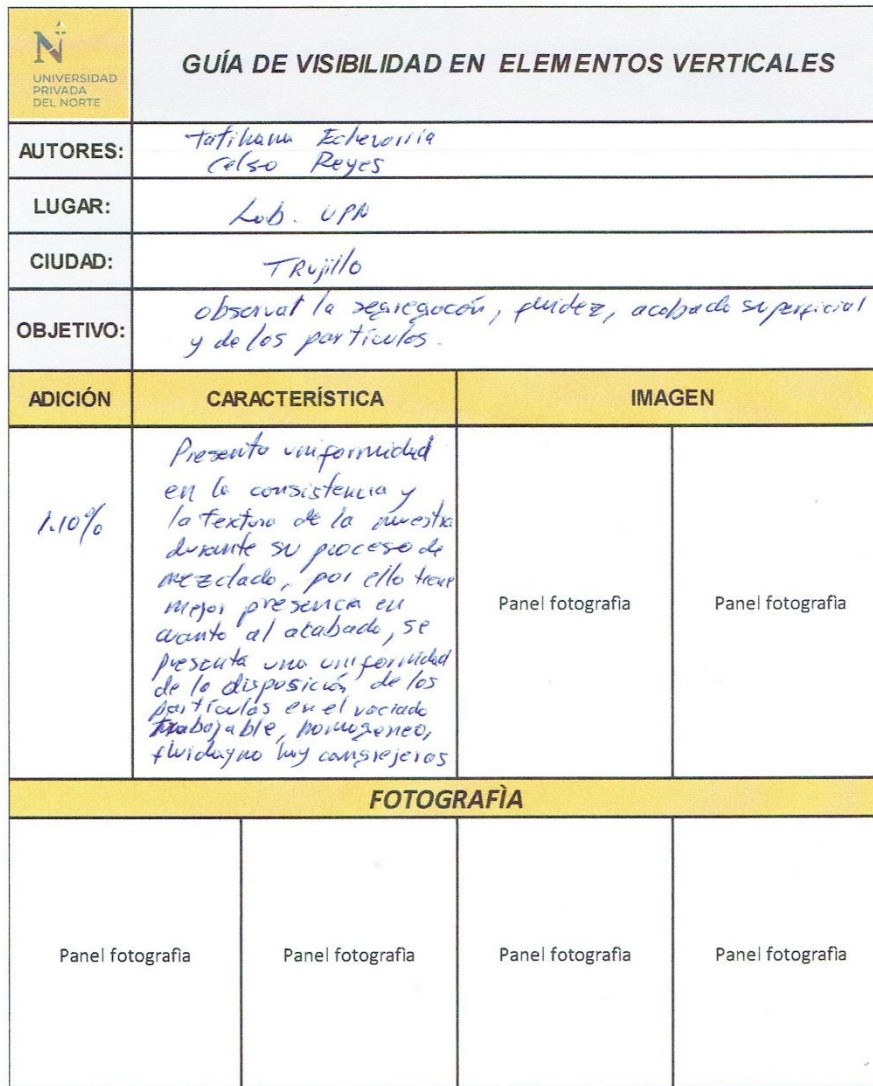 N
UNIVERSIDAD
PRIVADA
DEL NORTE
GUÍA DE VISIBILIDAD EN ELEMENTOS VERTICALES
AUTORES:
Tatihana Echevarria
Celso Reyes
LUGAR:
Lab. UPN
CIUDAD:
TRujillo
OBJETIVO:
observar la segregacón, fluidez, acabado superficial
y de los partículos.
ADICIÓN
CARACTERÍSTICA
IMAGEN
1.10%
Presenta uniformidad
en la consistencia y
la textura de la muestra
durante su proceso de
mezclado, por ello tiene
mejor presencia en
cuanto al acabado, se
presenta una uniformidad
de la disposición de los
partículos en el vaciado
trabajable, homogeneo,
fluida y no hay cangrejeras
Panel fotografìa
Panel fotografìa
FOTOGRAFÌA
Panel fotografìa
Panel fotografìa
Panel fotografìa
Panel fotografìa